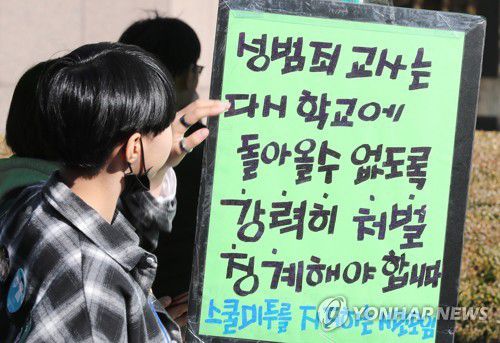 성범죄 교사는
다시 학교에
돌아올수 없도록
강력히 처벌
징계해야 합니다
스쿨미투를 지지하는 시민모임
YONHAP NEWS